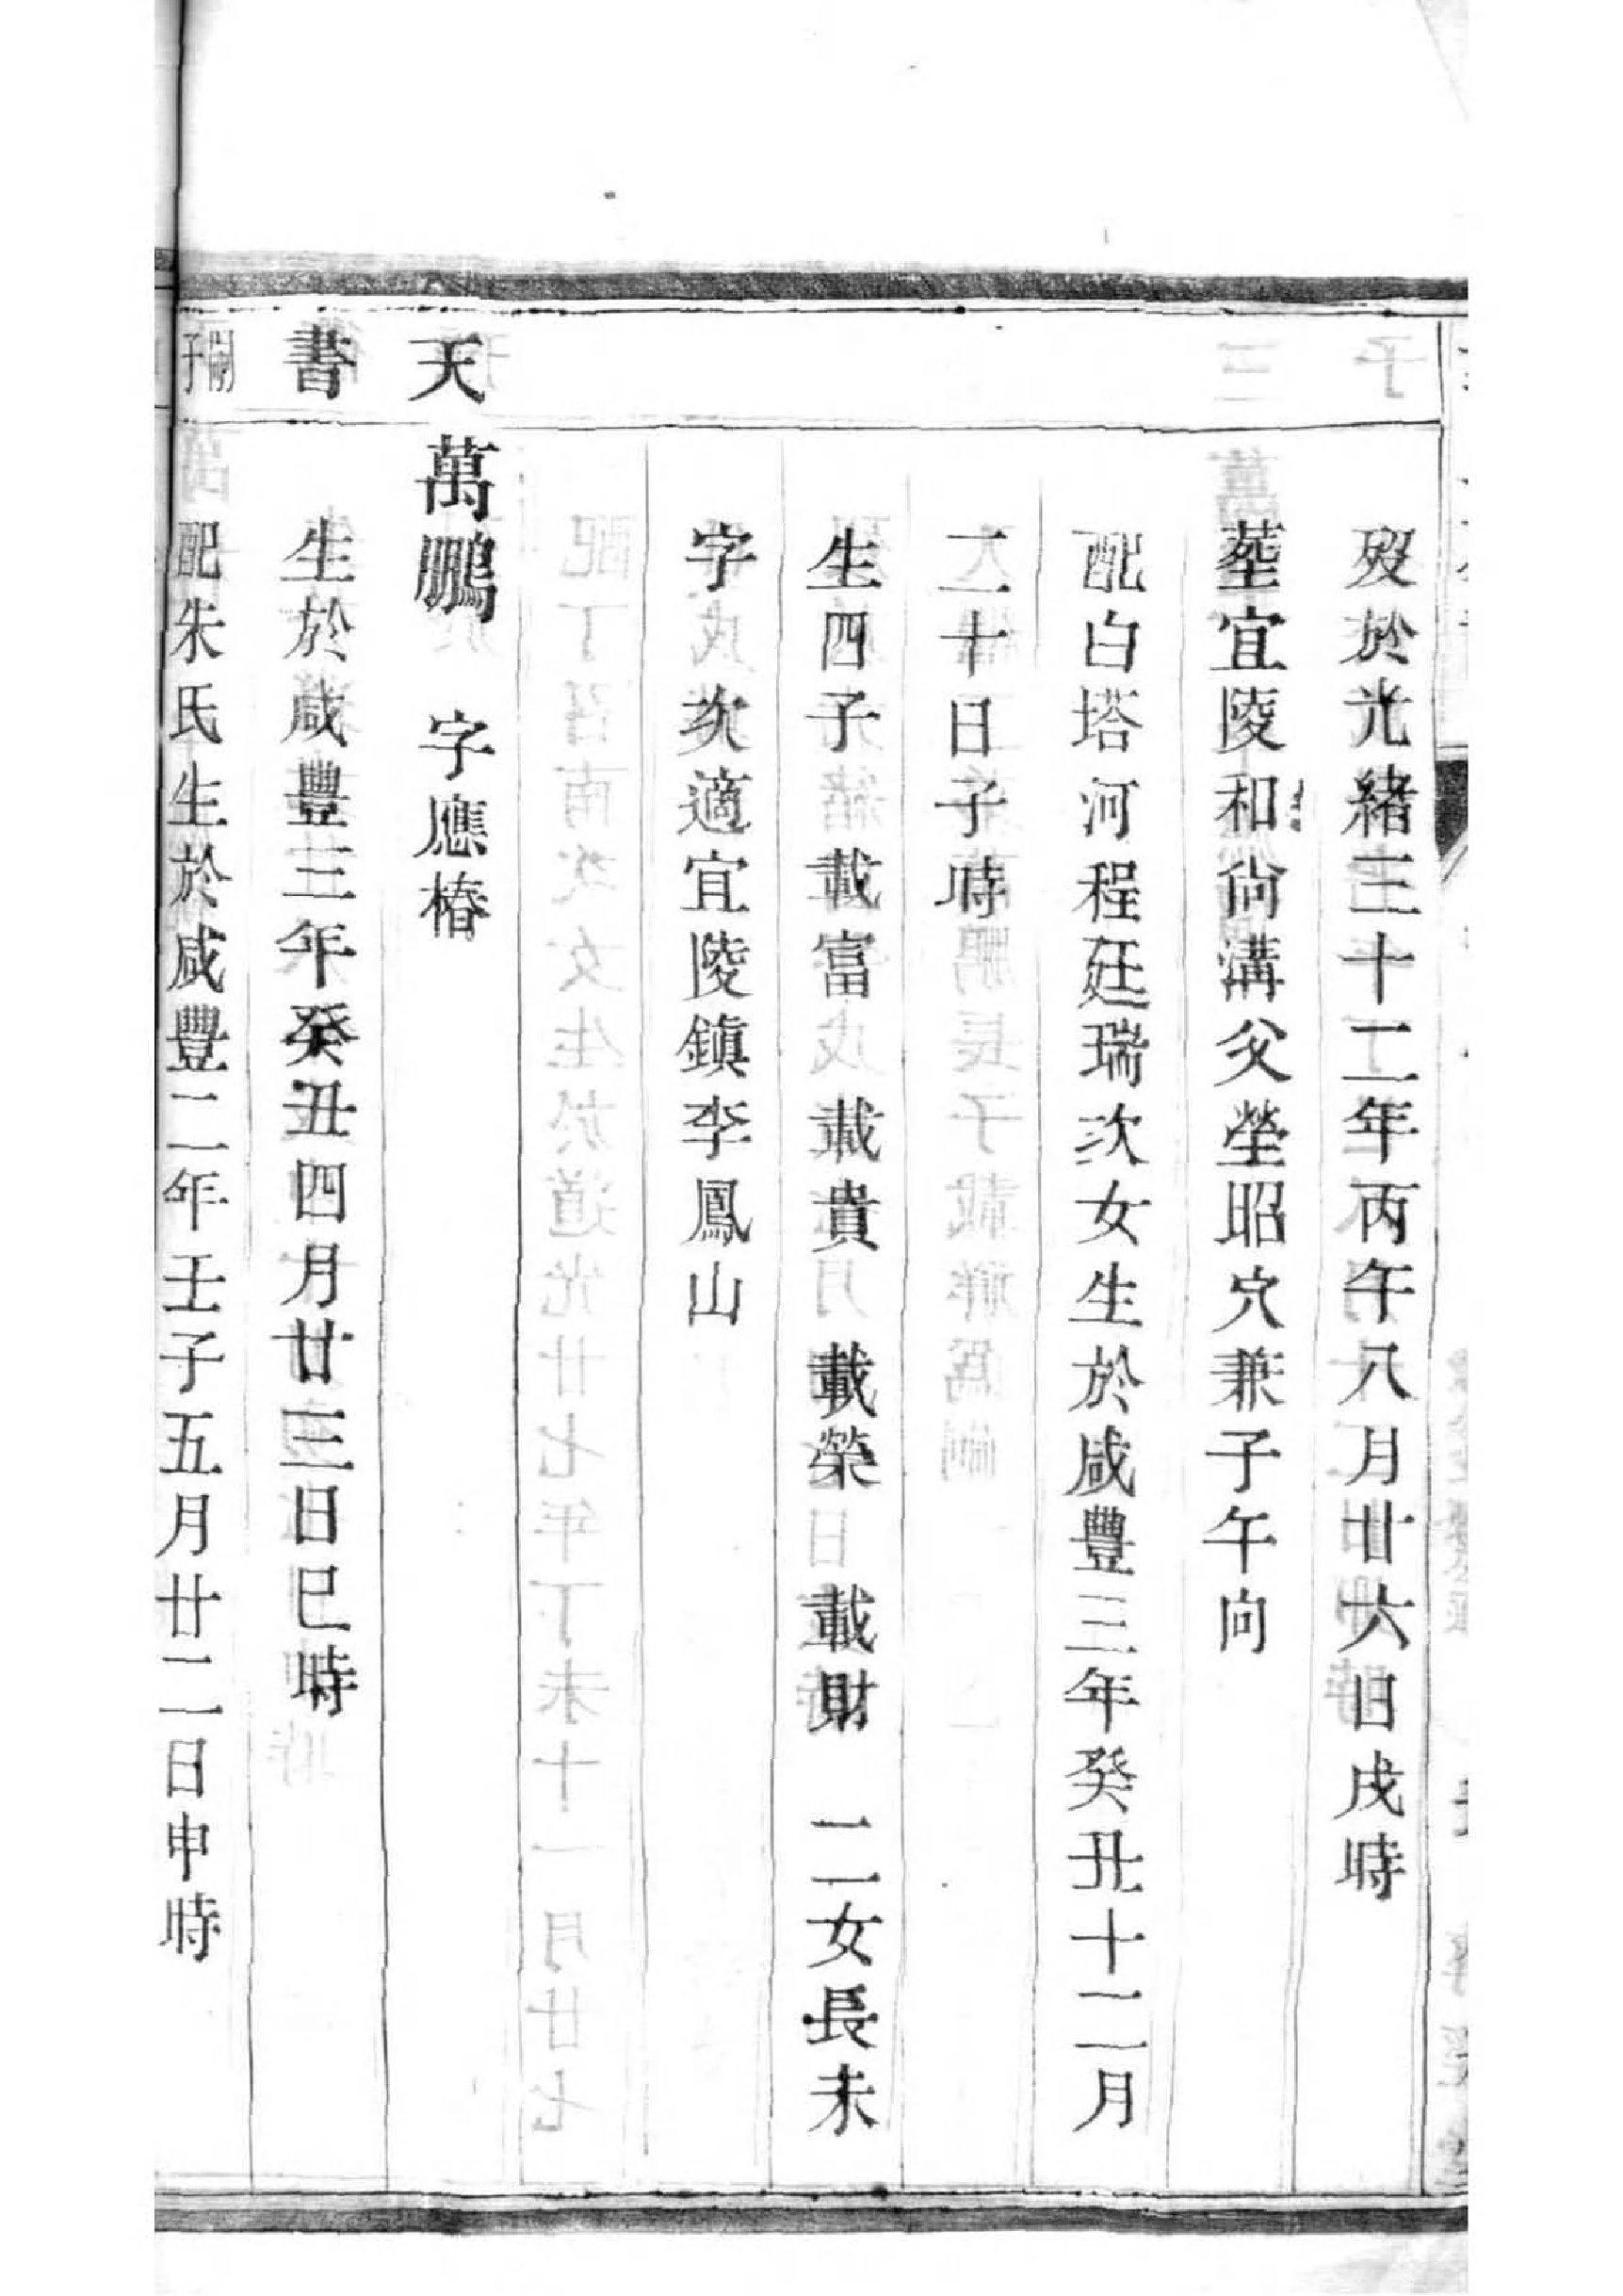 歿於光緒三十二年丙午八月廿六日戌時
塟宜陵和尙溝父塋昭穴兼子午向
配白塔河程廷瑞次女生於咸豐三年癸丑十二月
二十日子時
生四子載富 載貴 載榮 載財 二女長未
字次適宜陵鎭李鳳山
天 萬鵬 字應椿
書 生於咸豐三年癸丑四月廿三日巳時
嗣子 配朱氏生於咸豐二年壬子五月廿二日申時